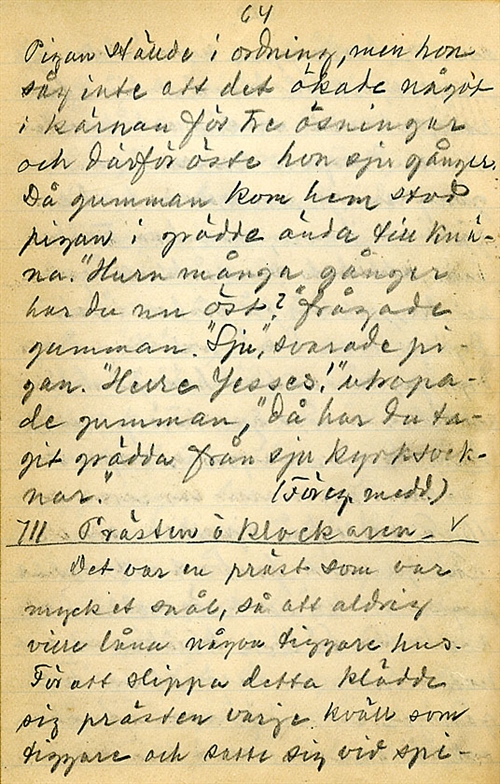 64
Pigan ställde i ordning, men hon
såg inte att det ökade något
i kärnan för tre ösningar
och därför öste hon sju gånger.
Då gumman kom hem stod
pigan i grädde ända till knä-
na. "Huru många gånger
har du nu öst?" frågade
gumman. "Sju", svarade pi-
gan. "Herre Jesses!" utropa-
de gumman, "då har du ta-
git grädda från sju kyrksock-
nar."
(Föreg. medd.)
711 Prästen o klockaren. √
Det var en präst som var
mycket snål, så att aldrig
ville låna några tiggare hus.
För att slippa detta klädde
sig prästen varje kväll som
tiggare och satte sig vid spi-